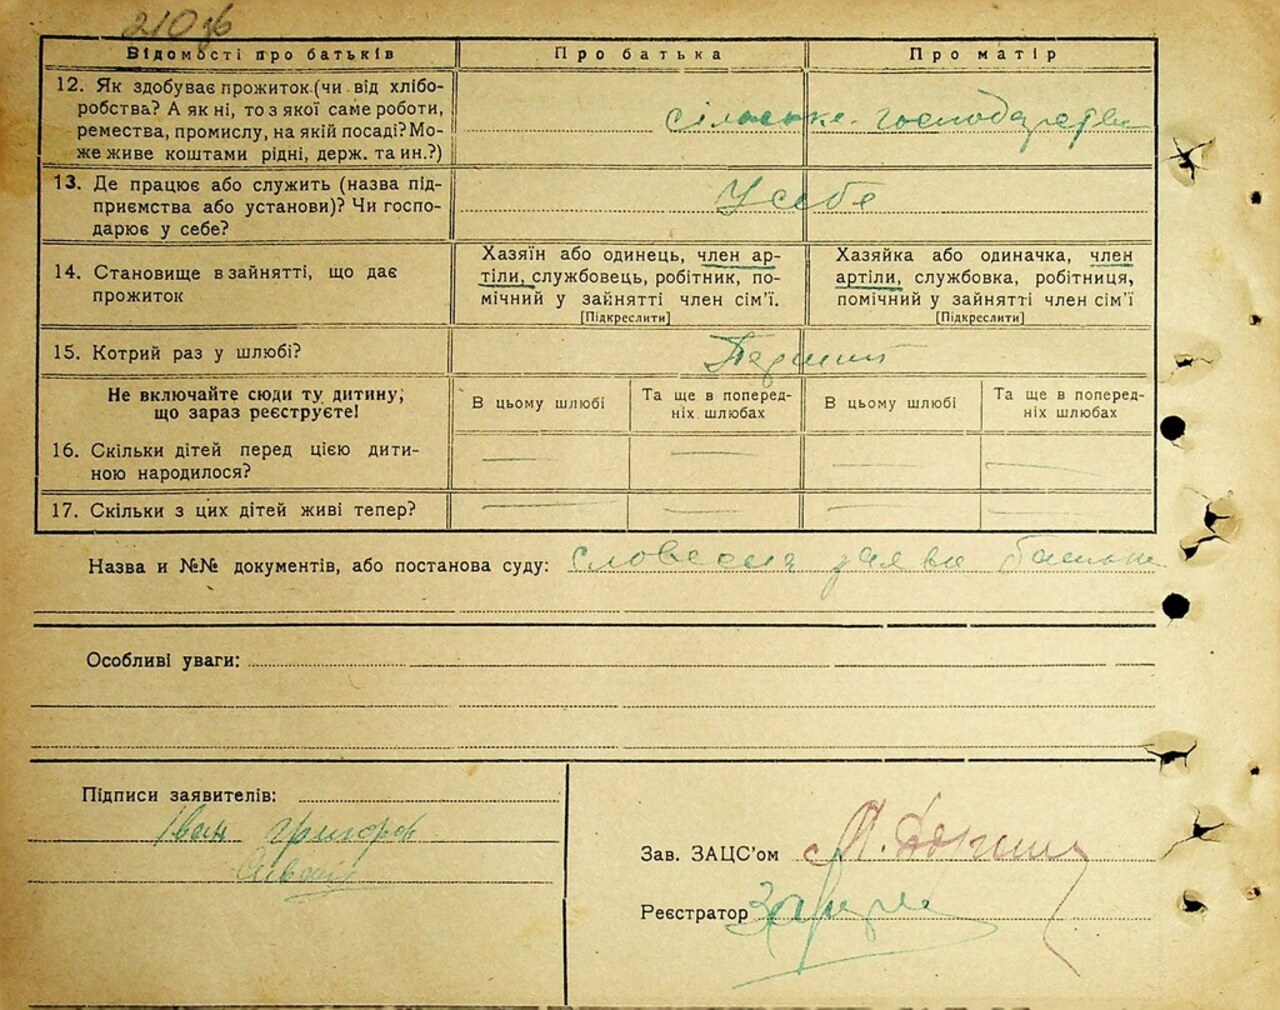 210 зв
Відомості про батьків
Про батька
Про матір
12. Як здобуває прожиток (чи від хлібо-
робства? А як ні, то з якої саме роботи,
ремества, промислу, на якій посаді? Мо-
же живе коштами рідні, держ. та ин.?)
сільське-господарство
13. Де працює або служить (назва під-
приємства або установи)? Чи госпо-
дарює у себе?
У себе
14. Становище в зайнятті, що дає
прожиток
Хазяїн або одинець, член ар-
тіли, службовець, робітник, по-
мічний у зайнятті член сім’ї.
[Підкреслити]
Хазяйка або одиначка, член
артіли, службовка, робітниця,
помічний у зайнятті член сім’ї
[Підкреслити]
15. Котрий раз у шлюбі?
Перший
Не включайте сюди ту дитину,
що зараз реєструєте!
В цьому шлюбі
Та ще в поперед-
ніх шлюбах
В цьому шлюбі
Та ще в поперед-
ніх шлюбах
16. Скільки дітей перед цією дити-
ною народилося?
17. Скільки з цих дітей живі тепер?
Назва и №№ документів, або постанова суду: словесна заява батька
Особливі уваги:
Підписи заявителів:
Іван Григоров
Зав. ЗАЦС’ом
Реєстратор